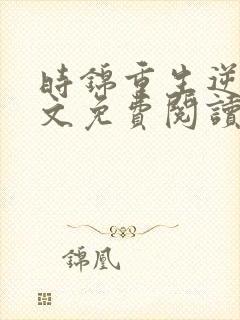 時錦重生逆
文免費閱讀
錦凰